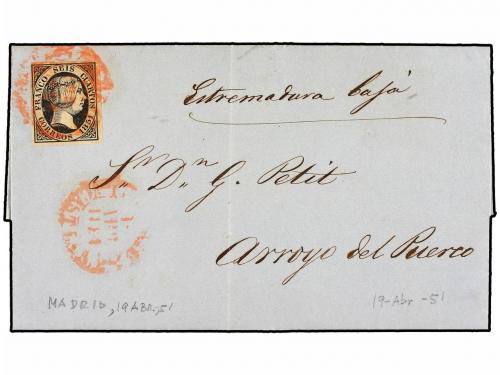 FRANCO SEIS CUARTOS
CORREOS 1851
Estremadura bajá
Sr. Dn. G. Petit
Arroyo del Puerco
MADRID, 19 ABR, 51
19-Abr-51